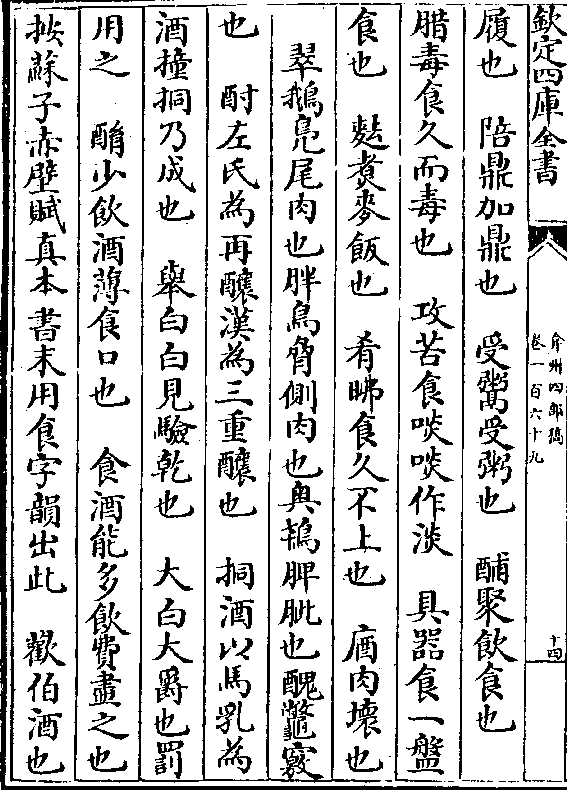 欽定四庫全書
弇州四部稿
卷一百六十九
十四
履也 陪鼎加鼎也 受鬻受粥也 酺聚飲食也
腊毒食久而毒也 攻苦食啖啖作淡 具器食一盤
食也 麩煑麥飯也 肴昲食久不上也 㢒肉壊也
翠鵝鳧尾肉也胖鳥脅側肉也奥鴇脾肶也醜鼈竅
也 酎左氏為再釀漢為三重釀也 挏酒以馬乳為
酒撞挏乃成也 舉白白見驗乾也 大白大爵也罰
用之 酳少飲酒薄食口也 食酒能多飲費盡之也
按蘇子赤壁賦真本書末用食字韻出此 歡伯酒也